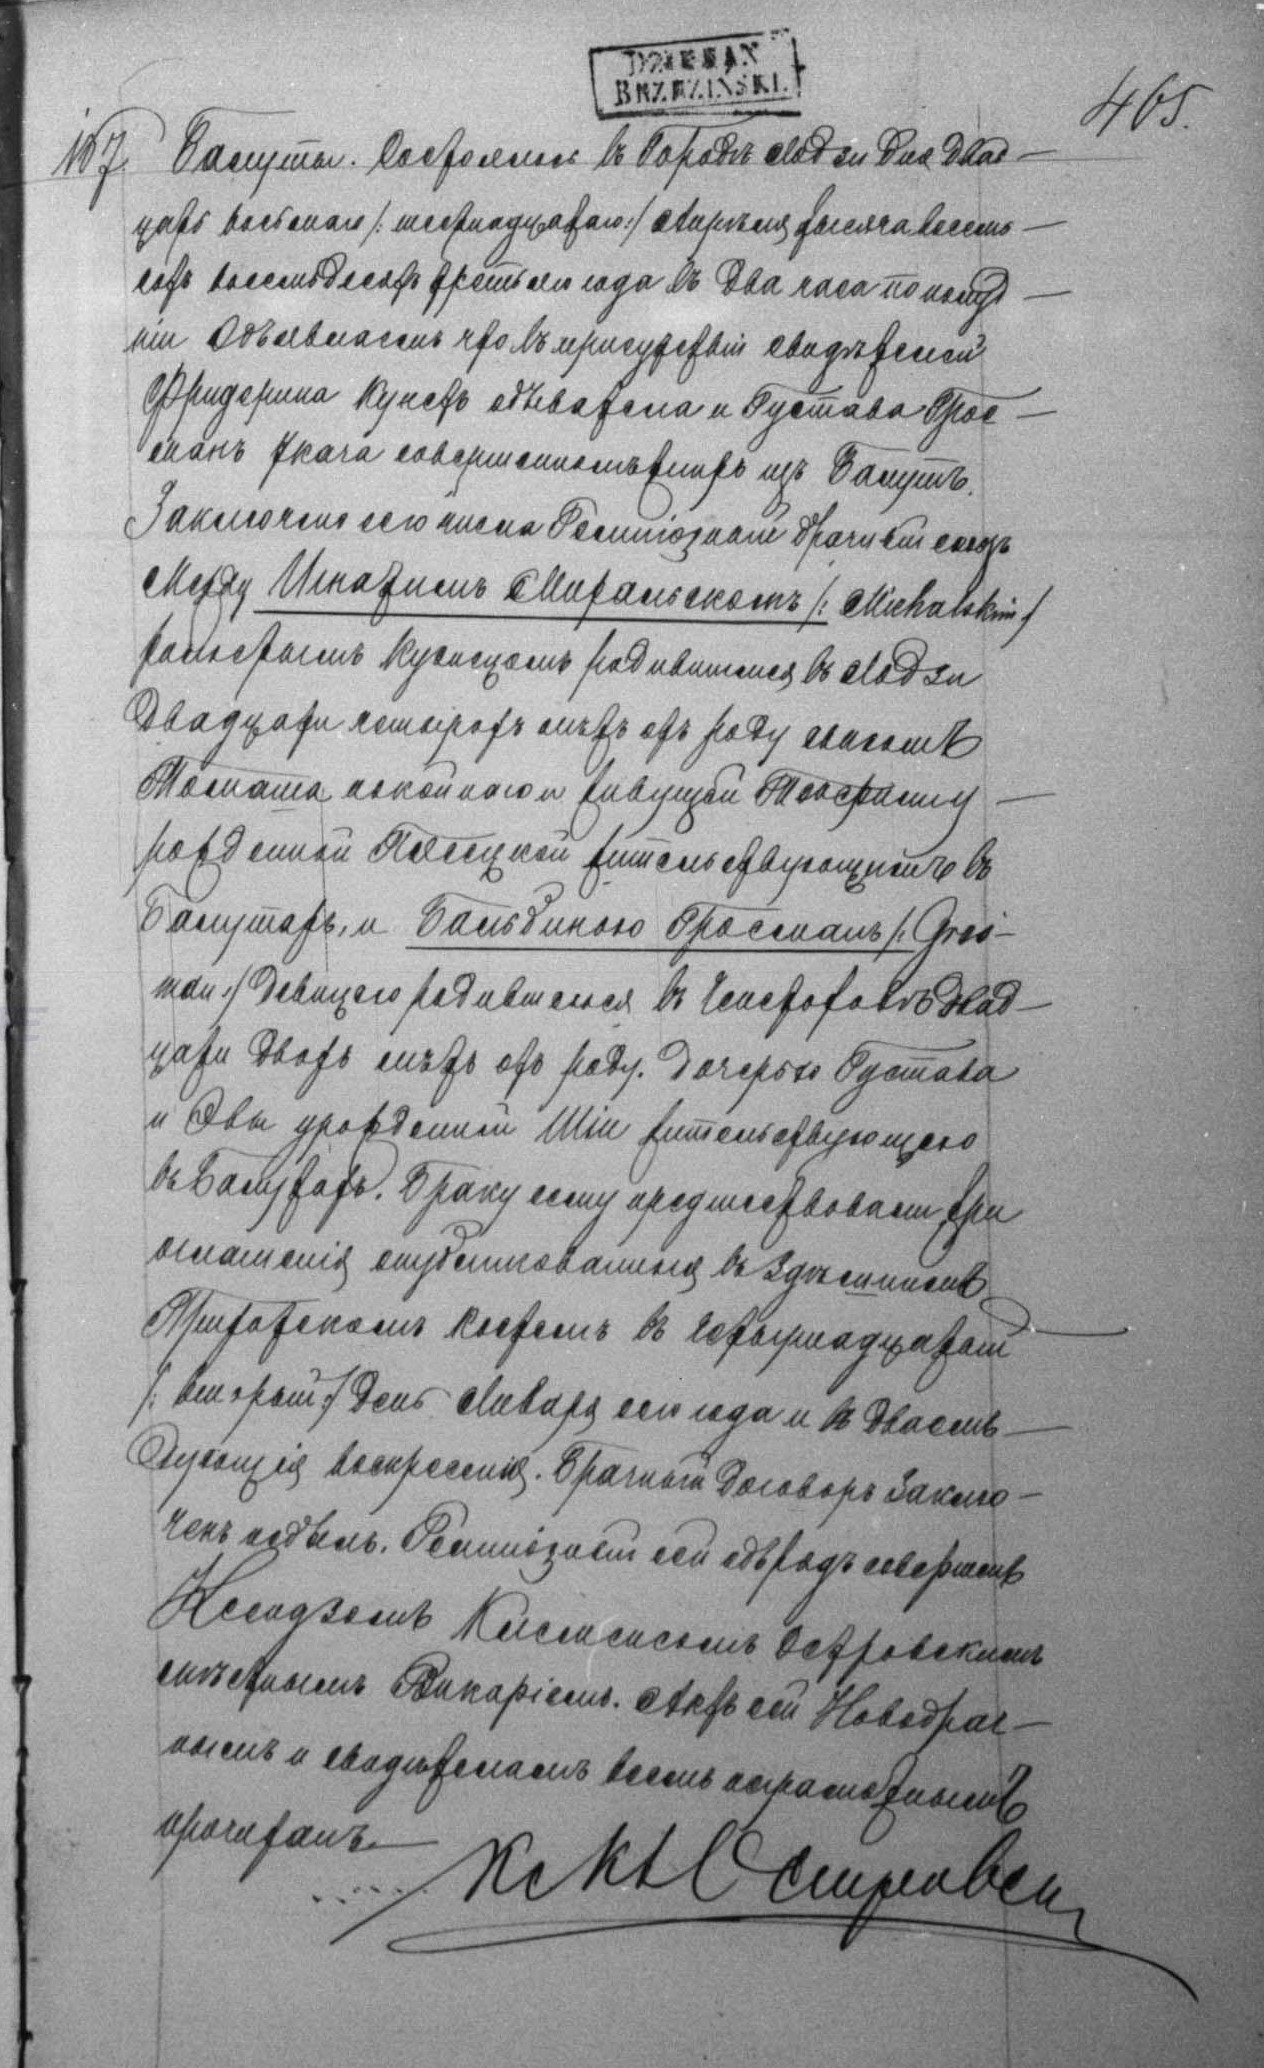 DZIEKAN
BRZEZIŃSKI.
465.
157. Балуты. Состоялось въ Городѣ Лодзи дня двад-
цать восьмаго /: шестнадцатаго :/ Апрѣля тысяча восемь
сотъ восемьдесятъ третьяго года въ два часа по полуд
ни. Объявляемъ что въ присутствіи свидѣтелей
Фридерика Кунстъ обывателя и Густава Грос
манъ ткача совершеннолѣтнихъ изъ Балутъ.
Заключено сего числа Религіозный брачный союзъ
Между Игнатіемъ Михальскомъ /: Michalskim /
холостымъ родившимся въ Лодзи
Двадцати четырехъ лѣтъ отъ роду сыномъ
покойнаго и живущей
рожденной жительствующимъ въ
Балутахъ, и Бальбиною Гросманъ /: Gros-
man :/ Девицею родившеюся въ Ченстоховѣ двад-
цати двухъ лѣтъ отъ роду. дочерью Густава
и Эвы урожденной жительствующею
въ Балутахъ. Браку сему предшествовали три
оглашенія опубликованныя въ здѣшнемъ
Приходскомъ костелѣ въ четырнадцатый
/: второй :/ день Января сего года и въ два слѣ-
дующія воскресенія. Брачный договоръ заклю-
ченъ небылъ. Религіозный сей обрядъ совершенъ
Ксендзомъ Островскимъ
мѣстнымъ Викаріемъ. Актъ сей Новобрач-
нымъ и свидѣтелямъ всемъ неграмотнымъ
прочитанъ.